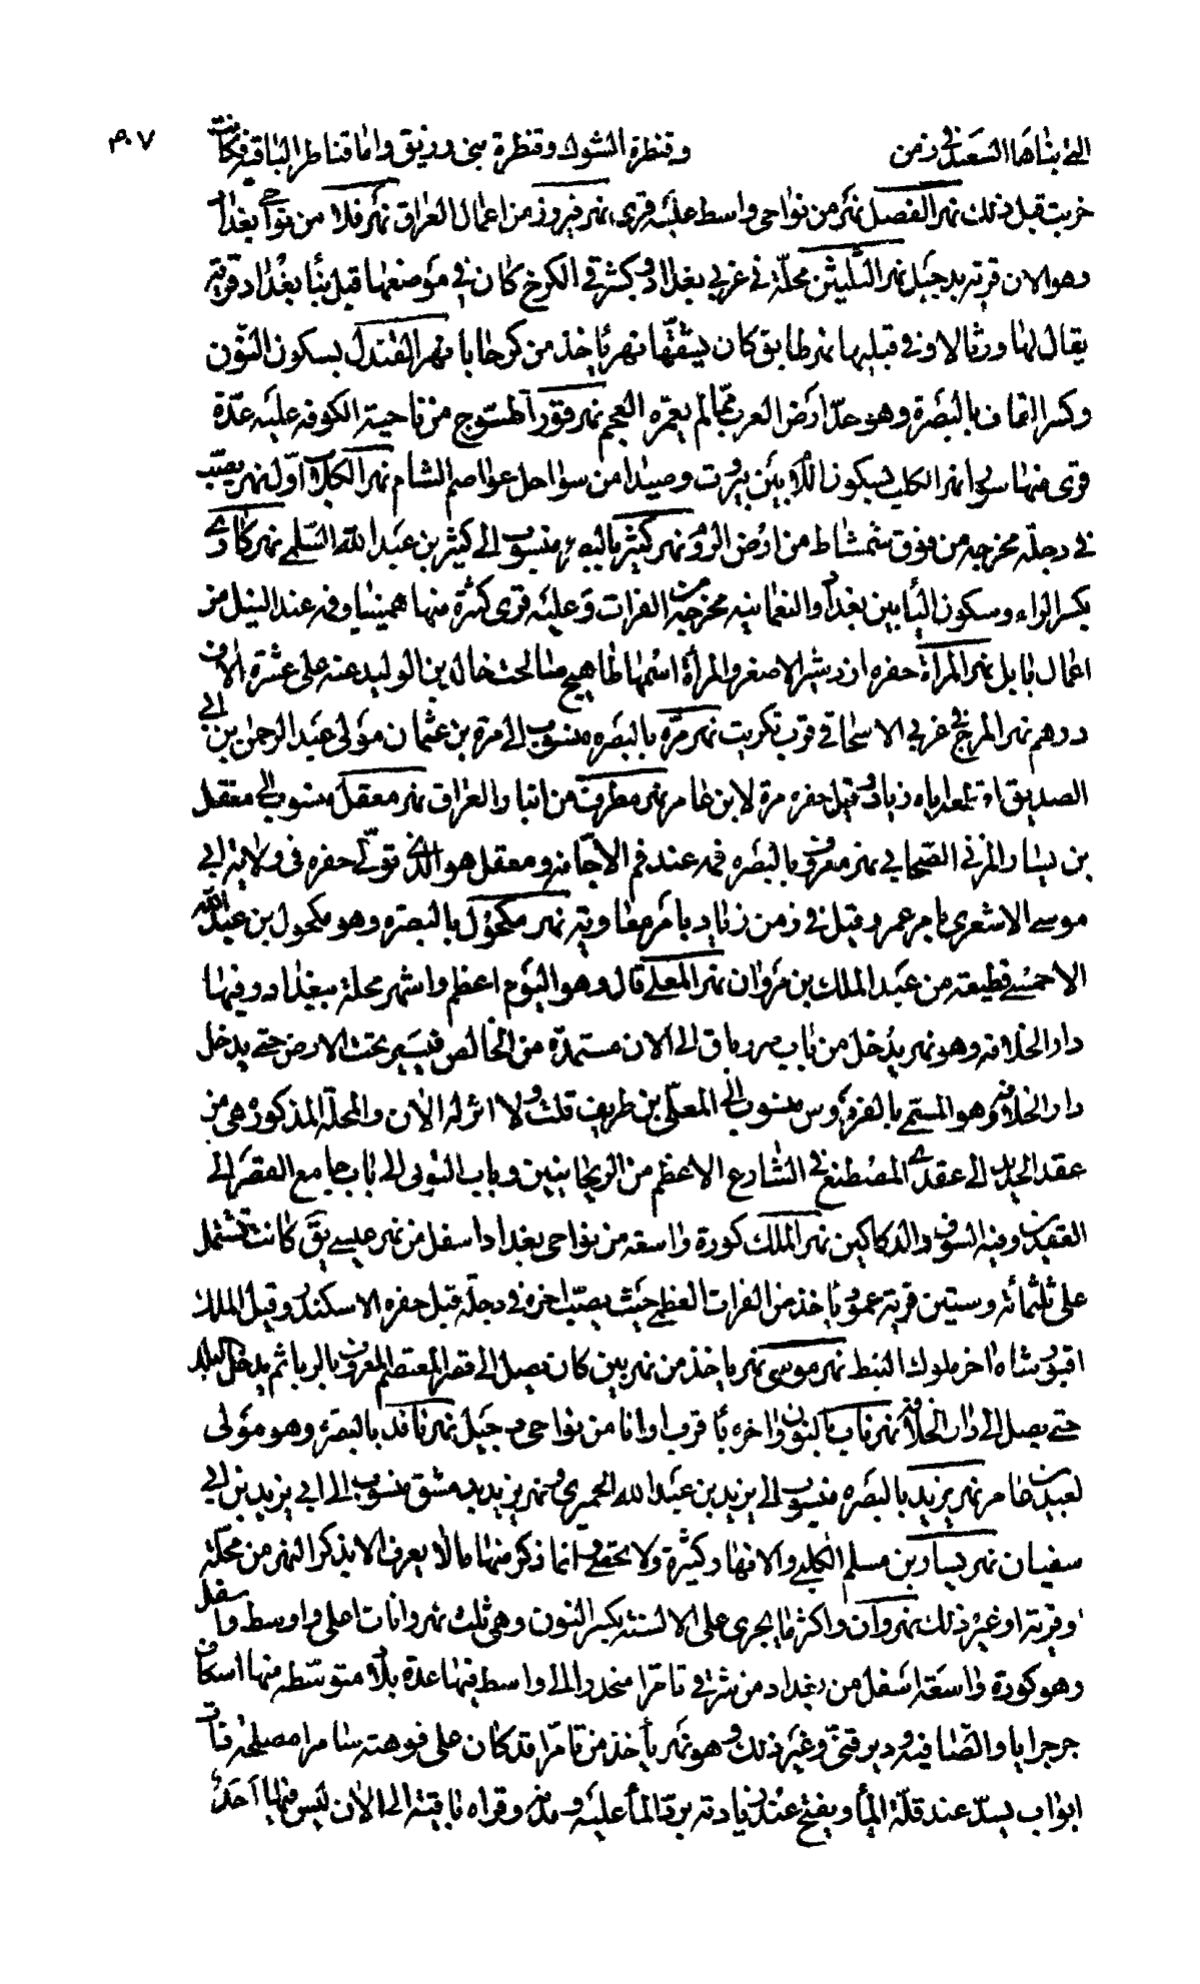 التي بناها السعيد في زمن وقنطرة الشوك وقنطرة بني رزيق واما قناطر الباقية فكانت ٣٠٧
خربت قبل ذلك نهر الفضل نهر من نواحي واسط عليه قرى نهر فيروز من اعمال العراق نهر قلا من نواحي بغداد
وهو الان قرية بدجيل نهر القلائين محلة في غربي بغداد وبشرقي الكرخ كان في موضعها قبل بنأ بغداد قرية
يقال لها ورثالا وفي قبليها نهر طابق كان يشقها نهر يأخذ من كرخايا نهر القندل بسكون النون
وكسر القاف بالبصرة وهو حد ارض العرب مما لم يعمره العجم نهر قورا طسوج من ناحية الكوفة عليه عدة
قرى منها سورا نهر الكلب بسكون اللام بين بيروت وصيدا من سواحل عواصم الشام نهر الكلاب اول نهر يصب
في دجلة مخرجه من فوق شمشاط من ارض الروم نهر كثير بالبصرة منسوب الى كثير بن عبد الله السلمي نهر ماري
بكسر الراء وسكون اليأ بين بغداد والنعمانيه مخرجه من الفرات وعليه قرى كثيرة منها همينيا وفمه عند النيل من
اعمال بابل نهر المرأة حفره اردشير الاصغر والمرأة اسمها طماهيج صالحت خالد بن الوليد عنه على عشرة الاف
درهم نهر المرج في غربي الاسحاقي قرب تكريت نهر مرة بالبصره منسوب الى مرة بن عثمان مولى عبد الرحمن بن ابي
الصديق اقطعه اياه زياد وقيل حفره مرة لابن عامر نهر مطرف من انبار العراق نهر معقل منسوب الى معقل
بن يسار المزني الصحابي نهر معروف بالبصره فمه عند فم الاجانه ومعقل هو الذي تولى حفره في ولاية ابي
موسى الاشعري بامر عمر وقيل في زمن زياد بامر معاوية نهر مكحول بالبصره وهو مكحول بن عبد الله
الاحمسي قطيعة من عبد الملك بن مروان نهر المعلى قال وهو اليوم اعظم واشهر محلة ببغداد وفيها
دار الخلافة وهو نهر يدخل من باب بين الى الان مستمدة من الخالص فيسير تحت الارض حتى يدخل
دار الخلافة وهو المسمى بالفردوس منسوب الى المعلى بن طريف قلت ولا اثر له الان والمحلة المذكوره هي من
عقد الحديد الى عقد المصطنع في الشارع الاعظم من الريحانيين وباب النوبى الى باب جامع القصر الى
العقدين وفيه السوق والدكاكين نهر الملك كورة واسعة من نواحى بغداد اسفل من نهر عيسى يق كانت تشتمل
على ثلثمائة وستين قرية عموده يأخذ من الفرات العظمى حيث يصب اخره في دجلة قيل حفره الاسكندر وقيل الملك
اقبورشاه اخر ملوك النبط نهر موسى نهر يأخذ من نهر بين كان يصل الى قصر المعتصم المعروف بالريا ثم يدخل البلد
حتى يصل الى دار الخلافة نهر ناب بالنون واخره بأ قرب اوانا من نواحى دجيل نهر نافذ بالبصره وهو مولى
لعبيد بن عامر نهر يزيد بالبصره منسوب الى يزيد بن عبد الله الحميري ونهر يزيد بدمشق منسوب الى ابي يزيد بن ابي
سفيان نهر يسار بن مسلم الكلبي والانهار كثيرة ولا تحصى انما ذكر منها ما لا يعرف الا بذكر النهر من محلة
او قرية او غير ذلك نهروان واكثر ما يجرى على الالسنة بكسر النون وهي ثلث نهروانات اعلى واوسط واسفل
وهو كورة واسعة اسفل من بغداد من شرقي تامرا منحدرا الى واسط فيها عدة بلاد متوسطة منها اسكاف
جرجرايا والصافية ودير قنى وغير ذلك وهو نهر يأخذ من تامرا قد كان على فوهته سامرا مصلحة ذات
ابواب يسد عند قلة المأ ويفتح عند زيادته برد المأ عليه ومدنه وقراه باقية الى الان ليس فيها احد